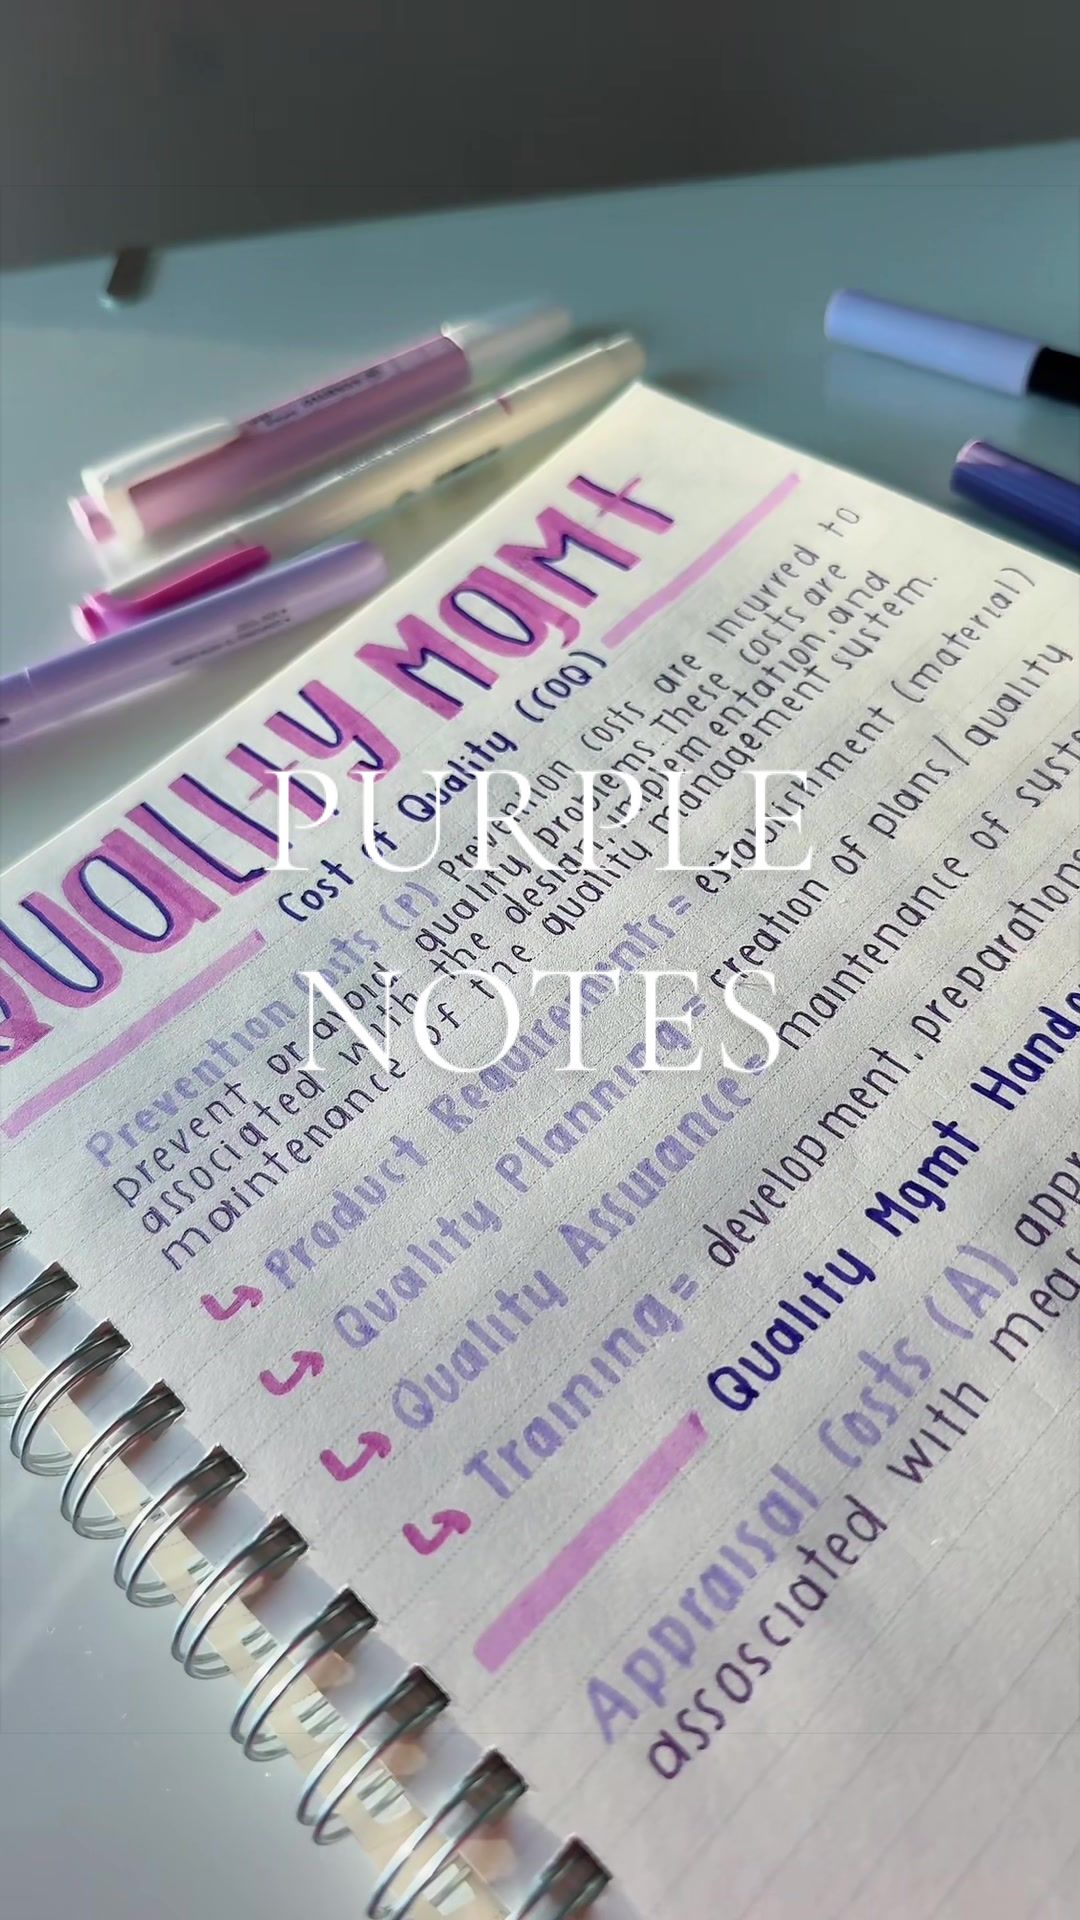 Quality Mgmt
Cost of Quality (COQ)
Prevention Costs (P) Prevention costs are incurred to
prevent or avoid quality problems. These costs are
associated with the design, implementation, and
maintenance of the quality management system.
↳ Product Requirements = establishment (material)
↳ Quality Planning = creation of plans/quality
↳ Quality Assurance = maintenance of
↳ Training = development, preparation
Quality Mgmt
Appraisal Costs (A)
assosciated with
PURPLE
NOTES